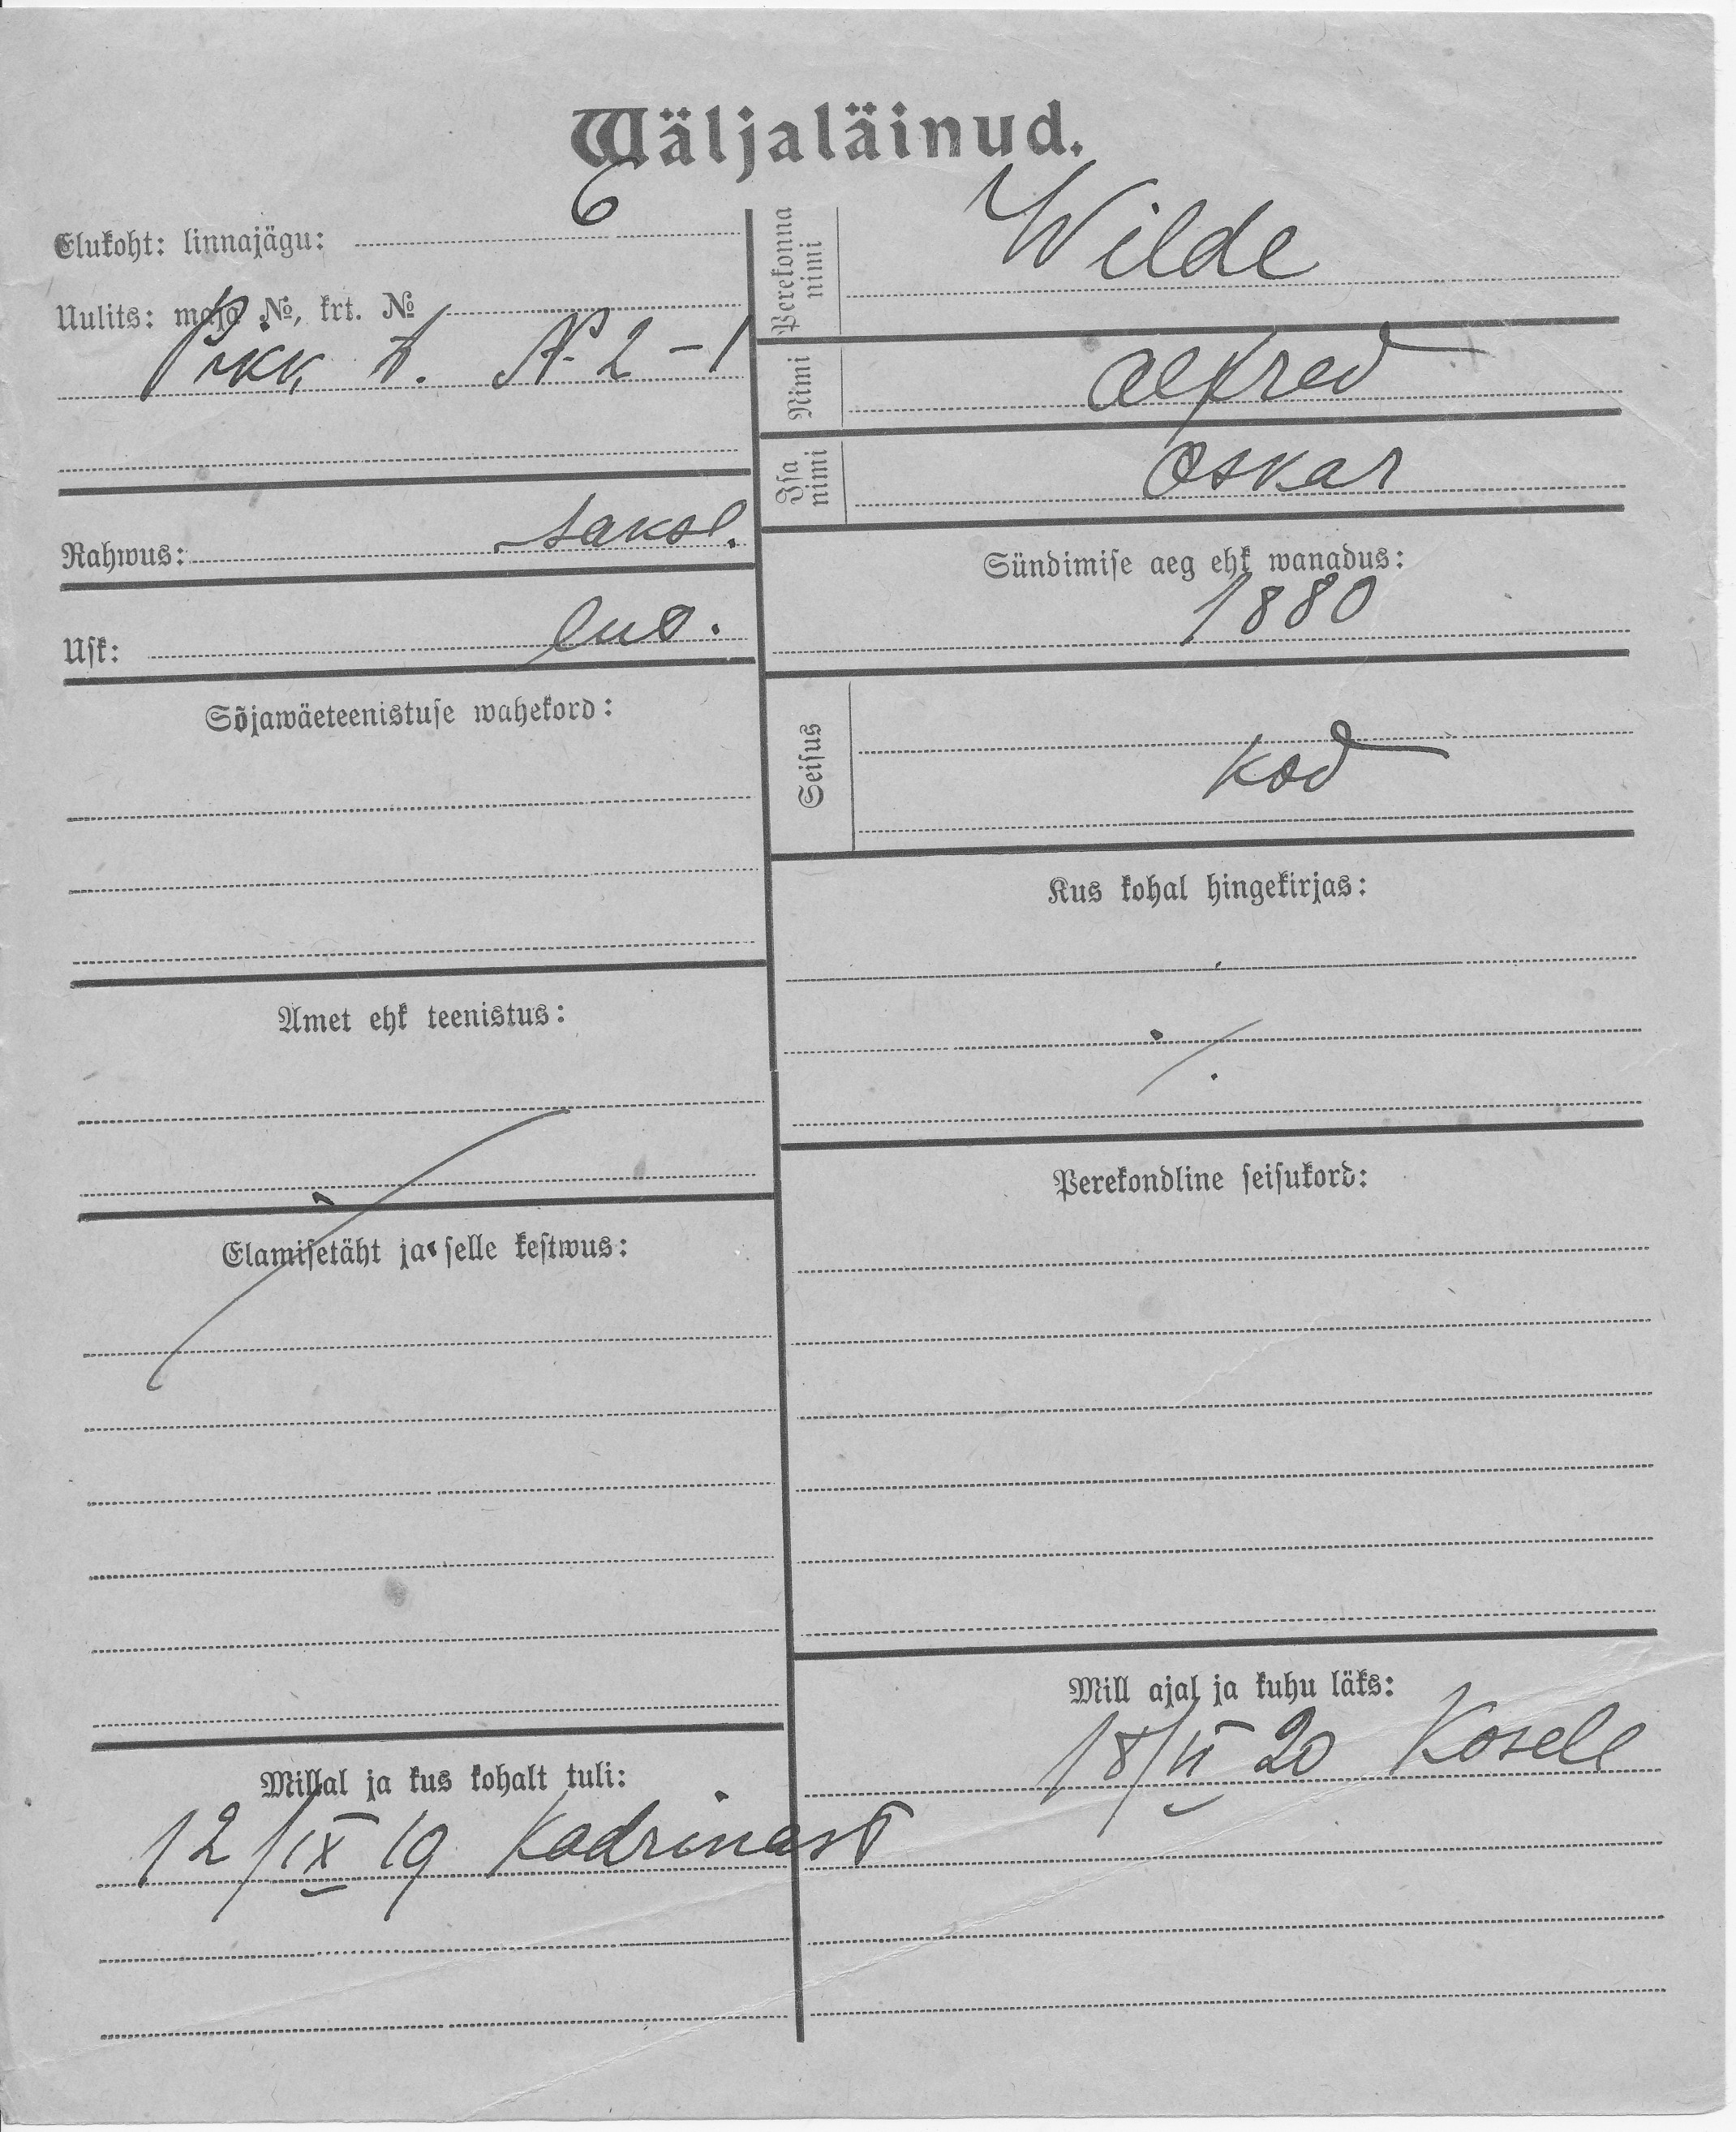 Wäljaläinud.
Elukoht: linnajägu: 6
Uulits: maja №, krt. №
Pikk t. № 2 - 1
Rahwus: saksl.
Usk: lut.
Sõjawäeteenistuse wahekord:
Amet ehk teenistus:
Elamisetäht ja selle kestwus:
Millal ja kus kohalt tuli:
12/IX 19 Kadrinast
Perekonna nimi Wilde
Nimi Alfred
Isa nimi Oskar
Sündimise aeg ehk wanadus:
1880
Seisus
kod
Kus kohal hingekirjas:
Perekondline seisukord:
Mill ajal ja kuhu läks:
18/VI 20 Kosele